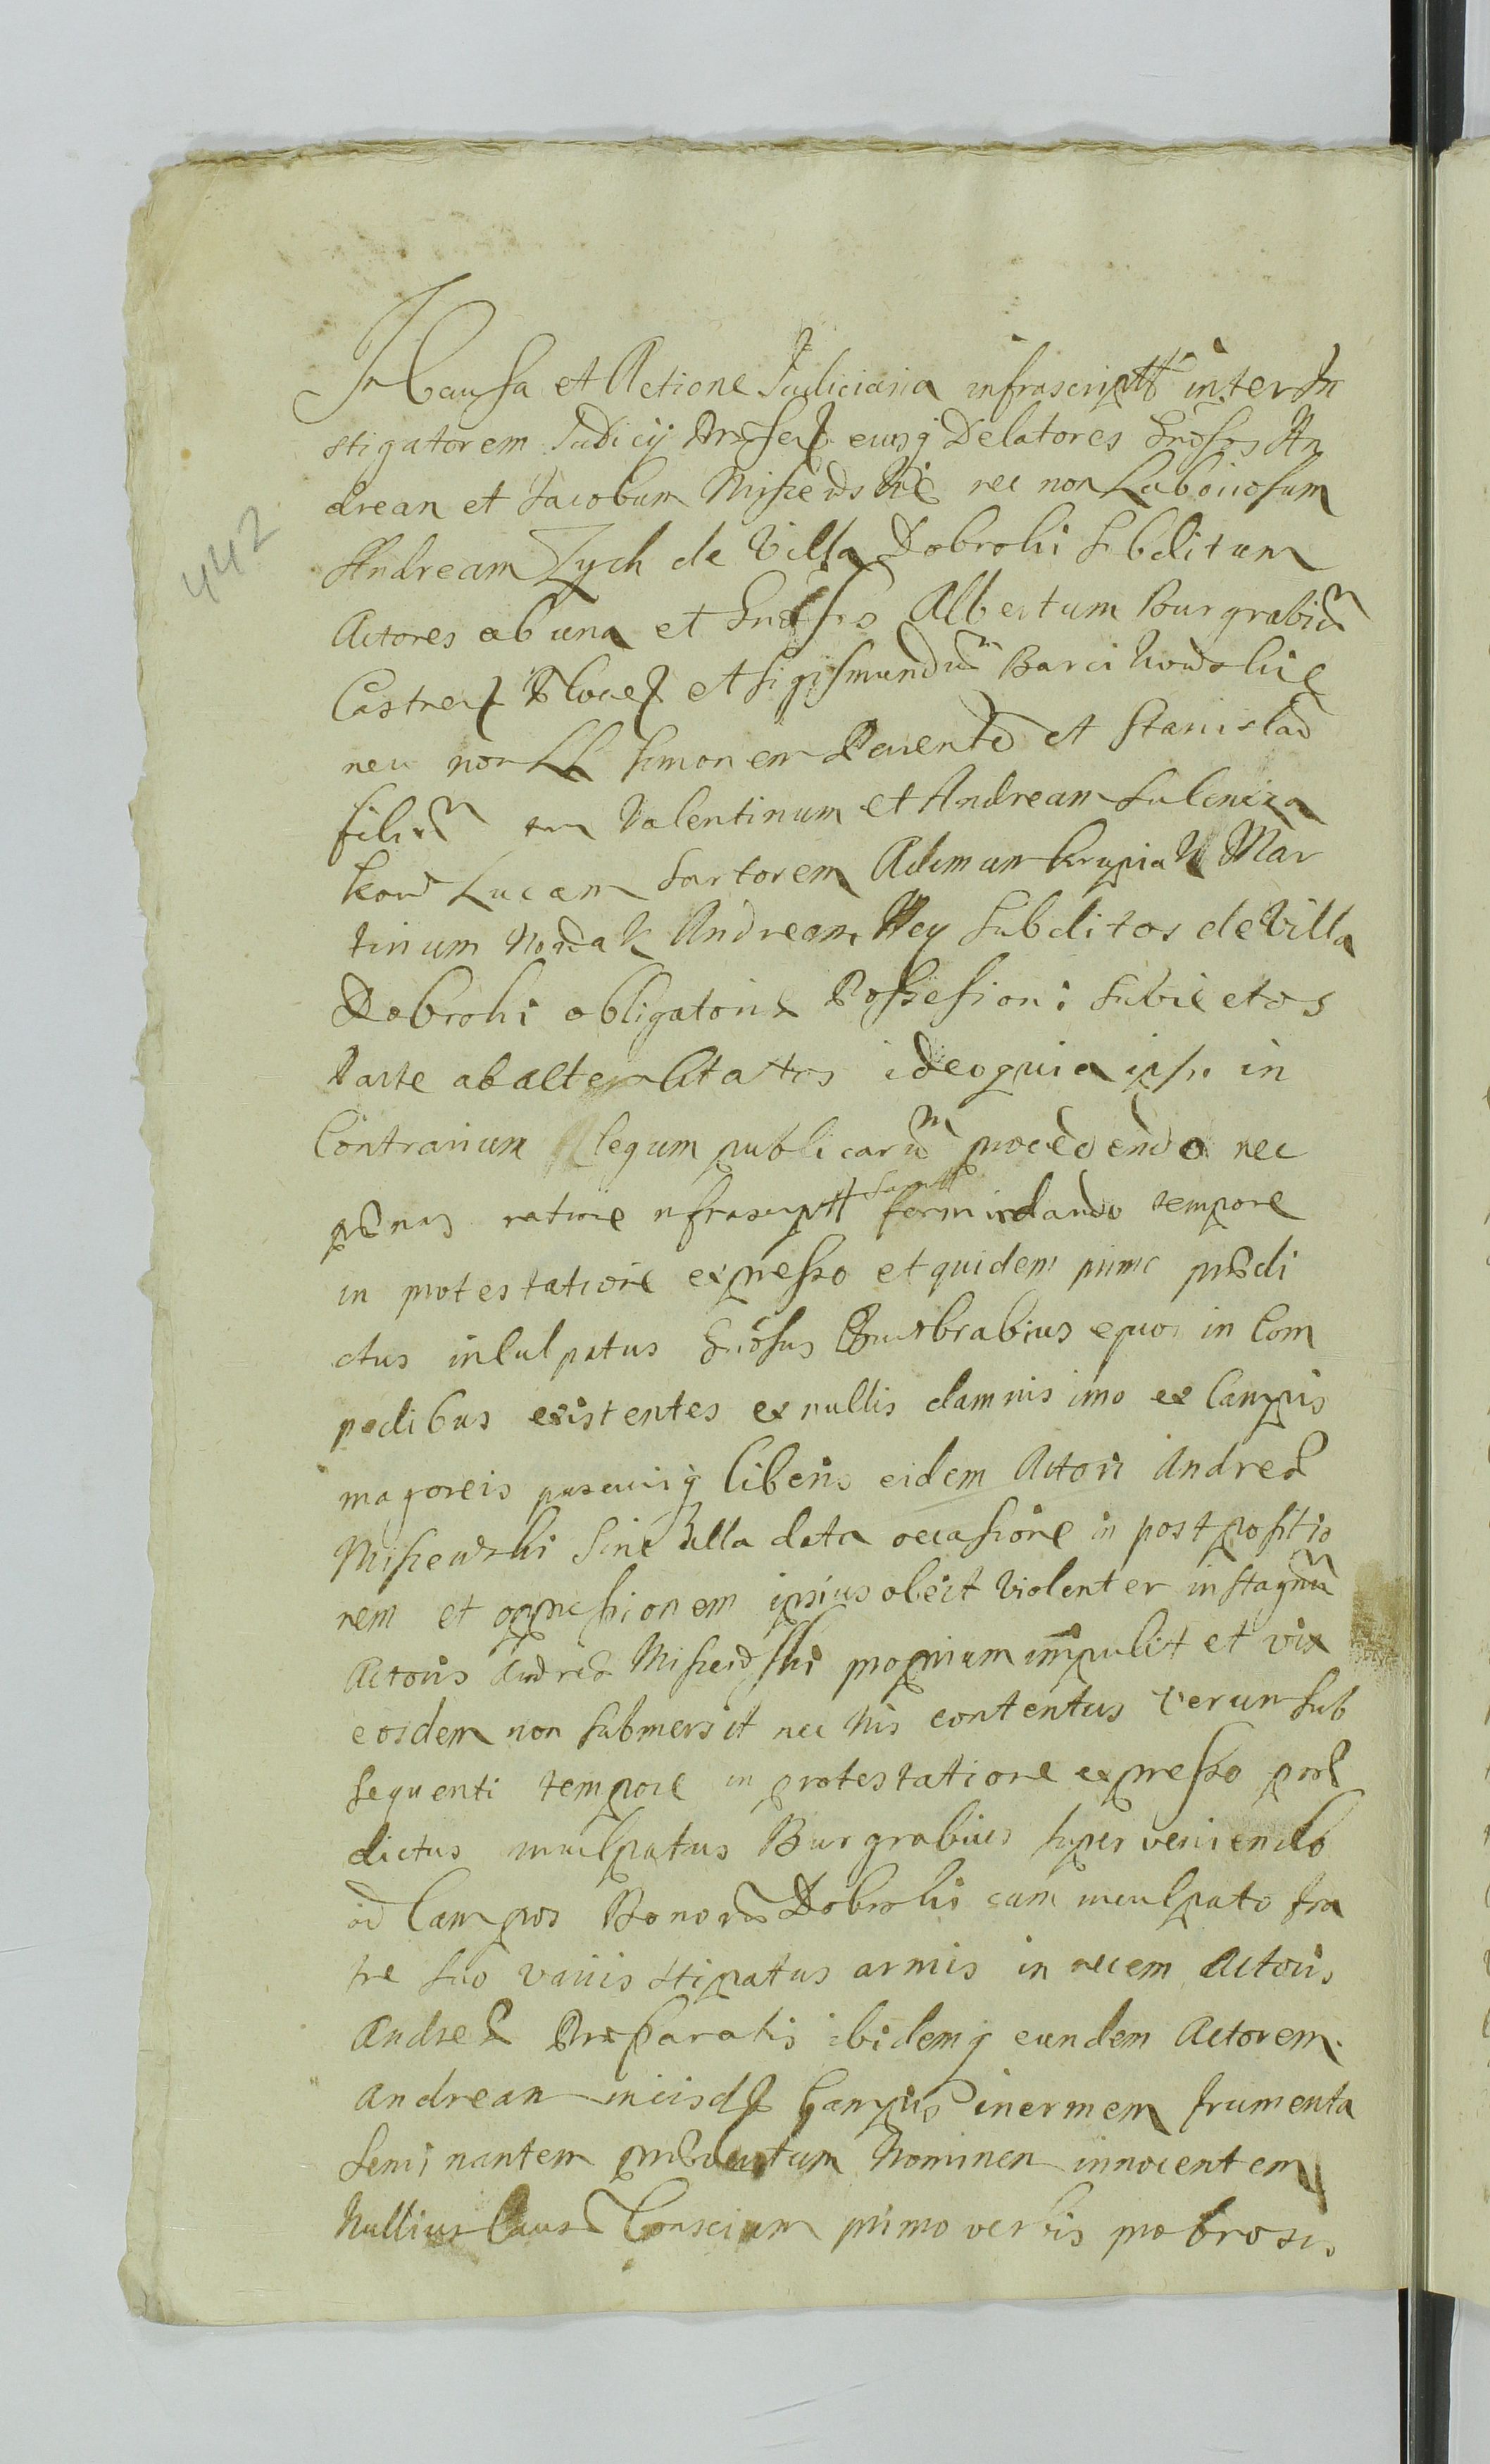 In Causa et Actione Judiciaria infrascriptt inter In
stigatorem Judicij Praesen eiusq Delatores Gnosos An
dream et Jacobum Miszewskie nec non Laboriosum
Andream Zych de Villa Dobrski subditum
Actores ab una et Gnosos Albertum Burgrabium
Castren Plocen et Sigismundum Barcikowskie
nec non LL Simonem Parentem et Stanislaum
filium Valentinum et Andream
Lucam Sartorem Adamum Krupiak Mar
tinum Nowak Andream subditos de Villa
Dobrski obligatoriae Possessioni subiectos
Parte ab altera Citatos ideo quia ipsi in
Contrarium legum publicarum procedendo nec
paenas ratione infrascriptt sancitt formidando tempore
in protestatione expresso et quidem primo praedi
ctus inculpatus Gnosus Burgrabius equos in Com
pedibus existentes ex nullis damnis imo ex Campis
liberis eidem Actori Andreae
Miszewski sine ulla data occasione in postpositio
nem et oppressionem ipsius obegit violenter in stagnum
Actoris Andreae Miszewski proprium impulit et vix
eosdem non submersit nec his contentus verum sub
sequenti tempore in protestatione expresso prae
dictus inculpatus Burgrabius superveniendo
ad Campos Bonorum Dobrski cum inculpato fra
tre suo variis stipatus armis in necem Actoris
Andreae Praeparatis ibidemq eundem Actorem
Andream in eisdem Campis inermem frumenta
seminantem hominem innocentem
Nullius Causae Conscium primo verbis probrosis
442